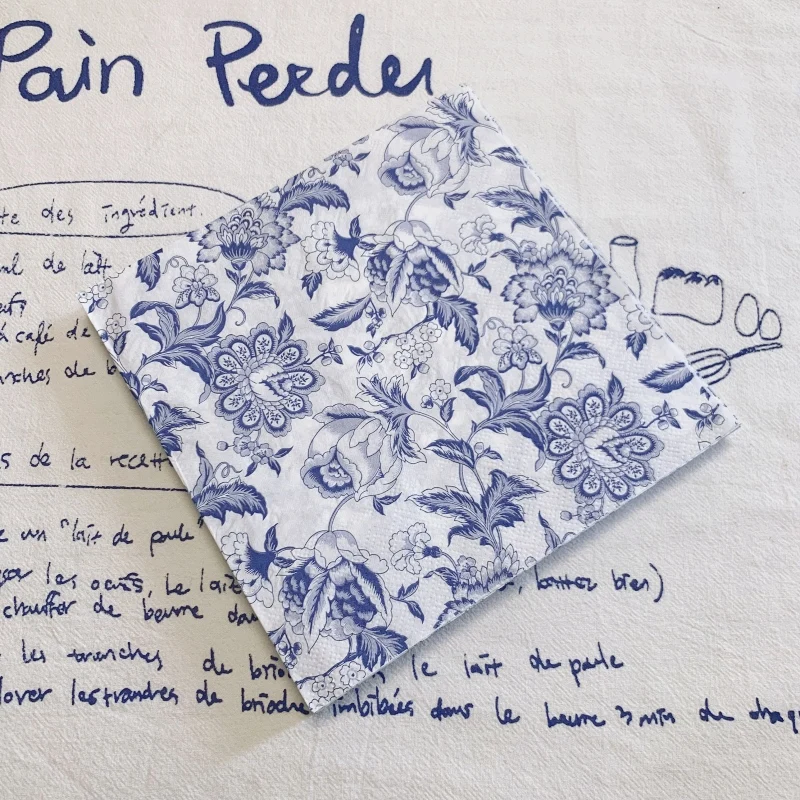 Pain Perdu
te des ingrédient.
ml de lait
à café de
nches de b
s de la recett
e un "lait de poule"
les oeufs, le lait
, battez bien)
chauffer de beurre dan
les tranches de brio le lait de poule
les trandres de brioche imbibées dans le beurre 3 min de chaq